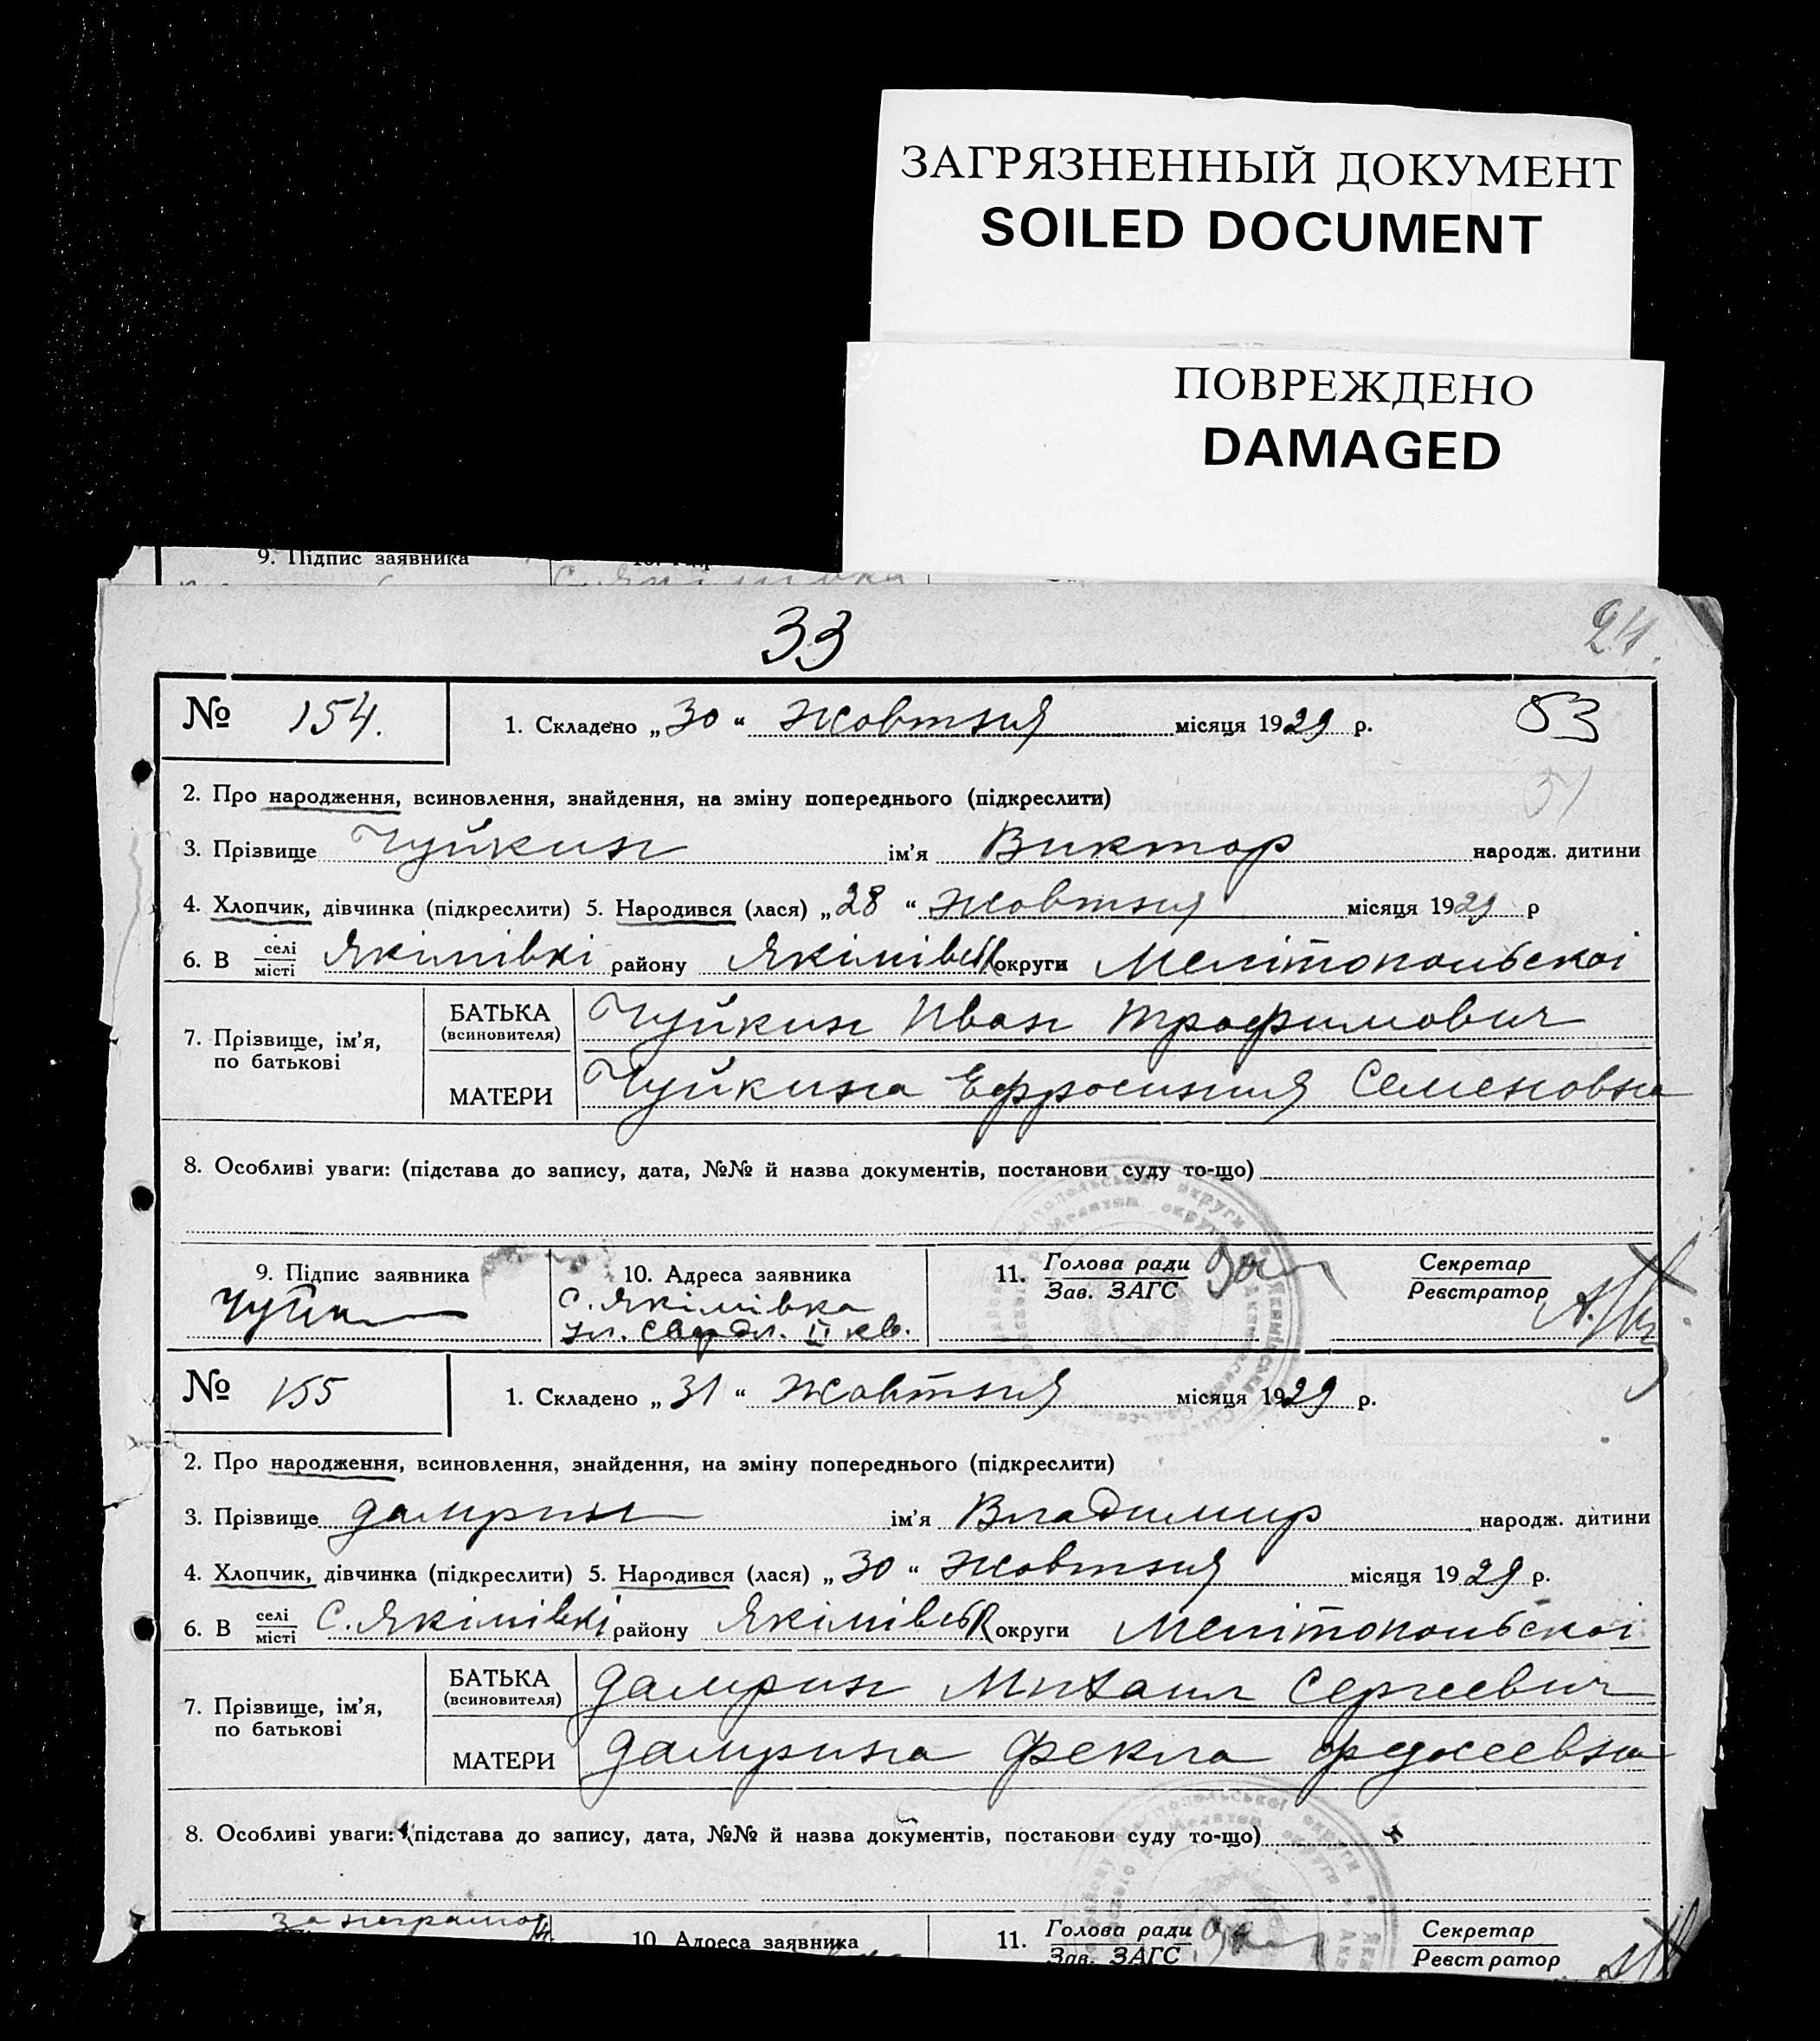 ЗАГРЯЗНЕННЫЙ ДОКУМЕНТ
SOILED DOCUMENT
ПОВРЕЖДЕНО
DAMAGED
9. Підпис заявника
33
24.
№ 154. 1. Складено „30“ Жовтня місяця 1929 р. 53
2. Про народження, всиновлення, знайдення, на зміну попереднього (підкреслити) 51
3. Прізвище Чуйкин ім'я Виктор народж. дитини
4. Хлопчик, дівчинка (підкреслити) 5. Народився (лася) „28“ Жовтня місяця 1929 р
6. В селі/місті Якімівкі району Якімівськ округи Мелітопольскоі
7. Прізвище, ім'я, по батькові
БАТЬКА (всиновителя) Чуйкин Иван Трофимович
МАТЕРИ Чуйкина Ефросиния Семеновна
8. Особливі уваги: (підстава до запису, дата, №№ й назва документів, постанови суду то-що)
9. Підпис заявника 10. Адреса заявника 11. Голова ради Секретар
Зав. ЗАГС Реєстратор
Чуйк
с. Якімівка
ул. Свердл. II кв.
№ 155 1. Складено „31“ Жовтня місяця 1929 р.
2. Про народження, всиновлення, знайдення, на зміну попереднього (підкреслити)
3. Прізвище ім'я Владимир народж. дитини
4. Хлопчик, дівчинка (підкреслити) 5. Народився (лася) „30“ Жовтня місяця 1929 р.
6. В селі/місті С. Якімівкі району Якімівськ округи Мелітопольскоі
7. Прізвище, ім'я, по батькові
БАТЬКА (всиновителя) Михаил Сергеевич
МАТЕРИ Фекла
8. Особливі уваги: (підстава до запису, дата, №№ й назва документів, постанови суду то-що)
за неграмот
10. Адреса заявника 11. Голова ради Секретар
Зав. ЗАГС Реєстратор